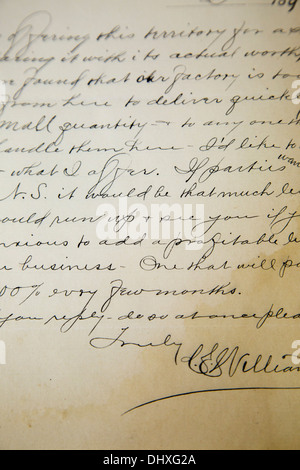 189
offering this territory for a s
aring it with its actual worth
found that our factory is too
from here to deliver quick
small quantity - & to any one
handle them here - I'd like to
- what I offer. If parties want
N.S. it would be that much le
ould run up & see you if y
anxious to add a profitable li
business - One that will pa
00% every few months.
you reply - do so at once pleas
Truly
C.E. Willian
alamy
Image ID: DHXG2A
www.alamy.com